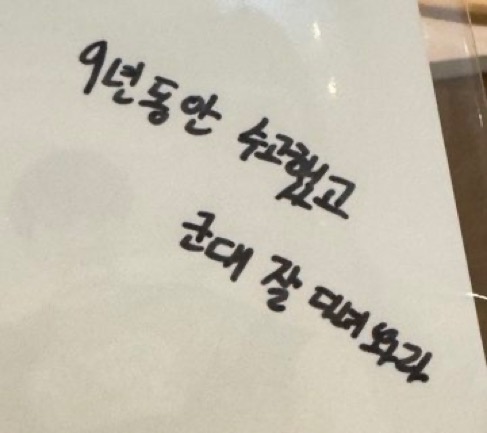 9년동안 수고했고
군대 잘 다녀와라